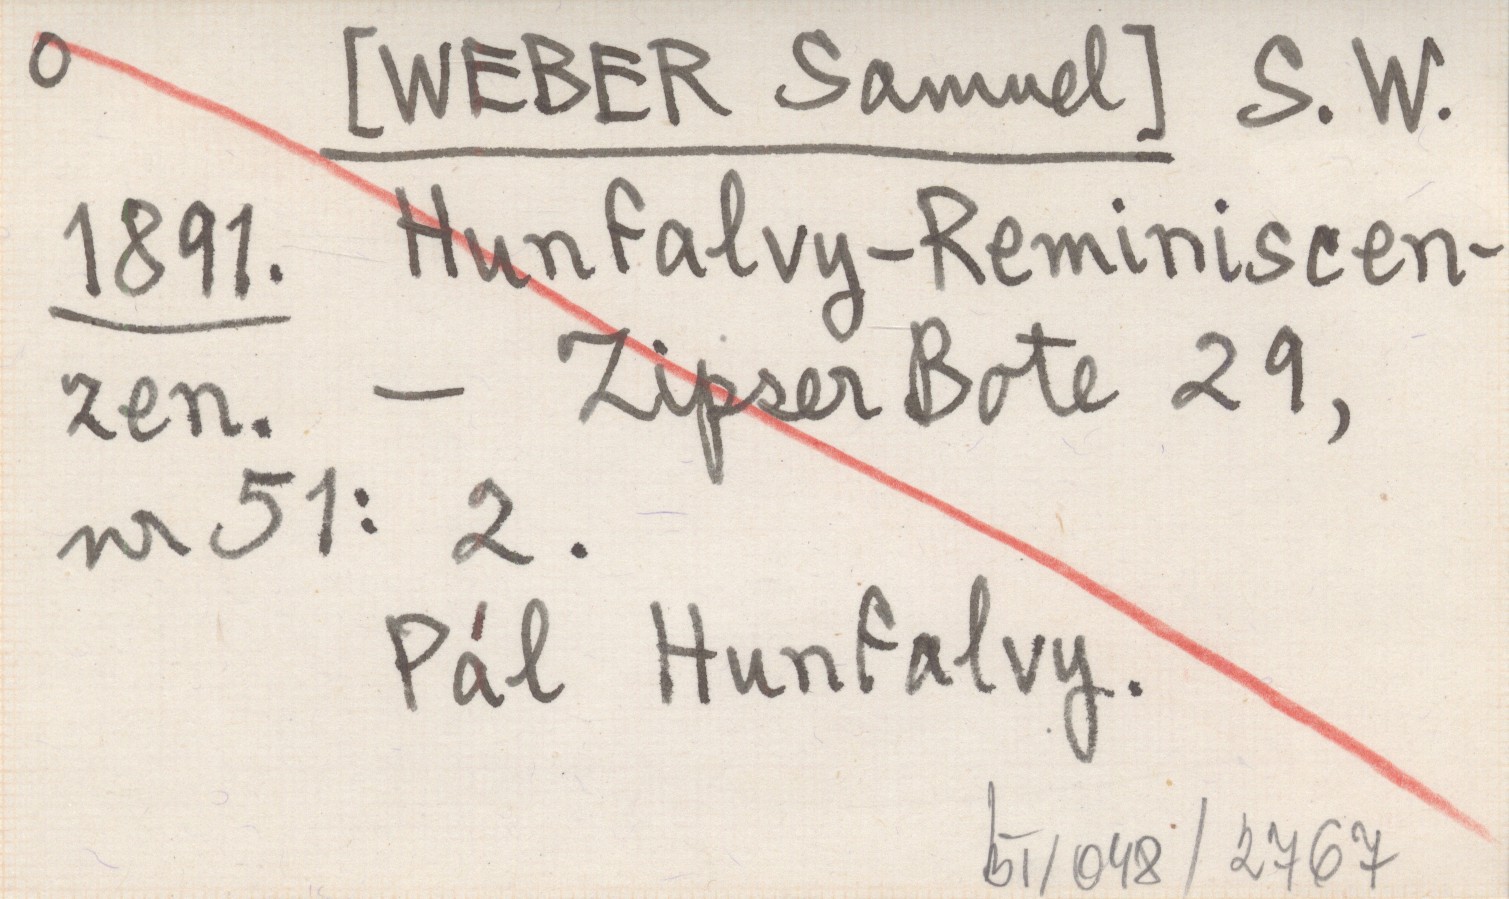 o [WEBER Samuel] S. W.
1891. Hunfalvy-Reminiscen-
zen. — Zipser Bote 29,
nr 51: 2.
Pál Hunfalvy.
/048/2767